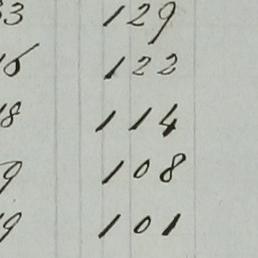 33 129
16 122
18 114
9 108
19 101